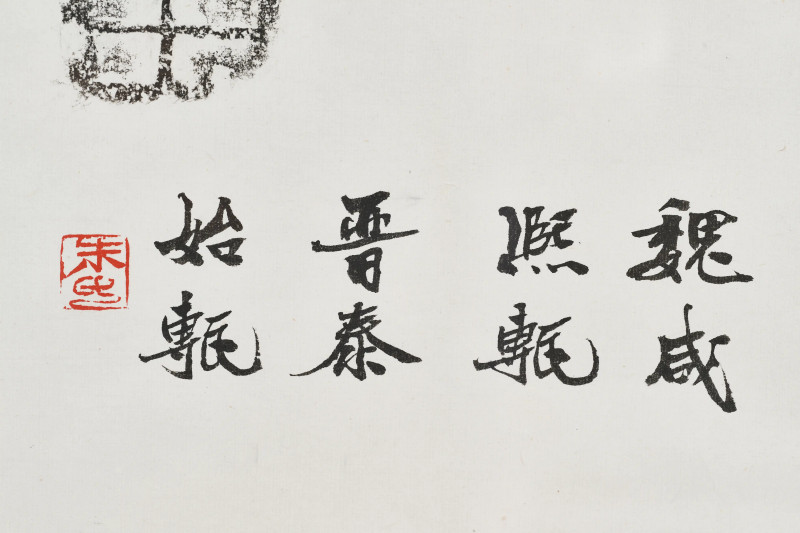 魏咸
熙甎
晋泰
始甎
朱